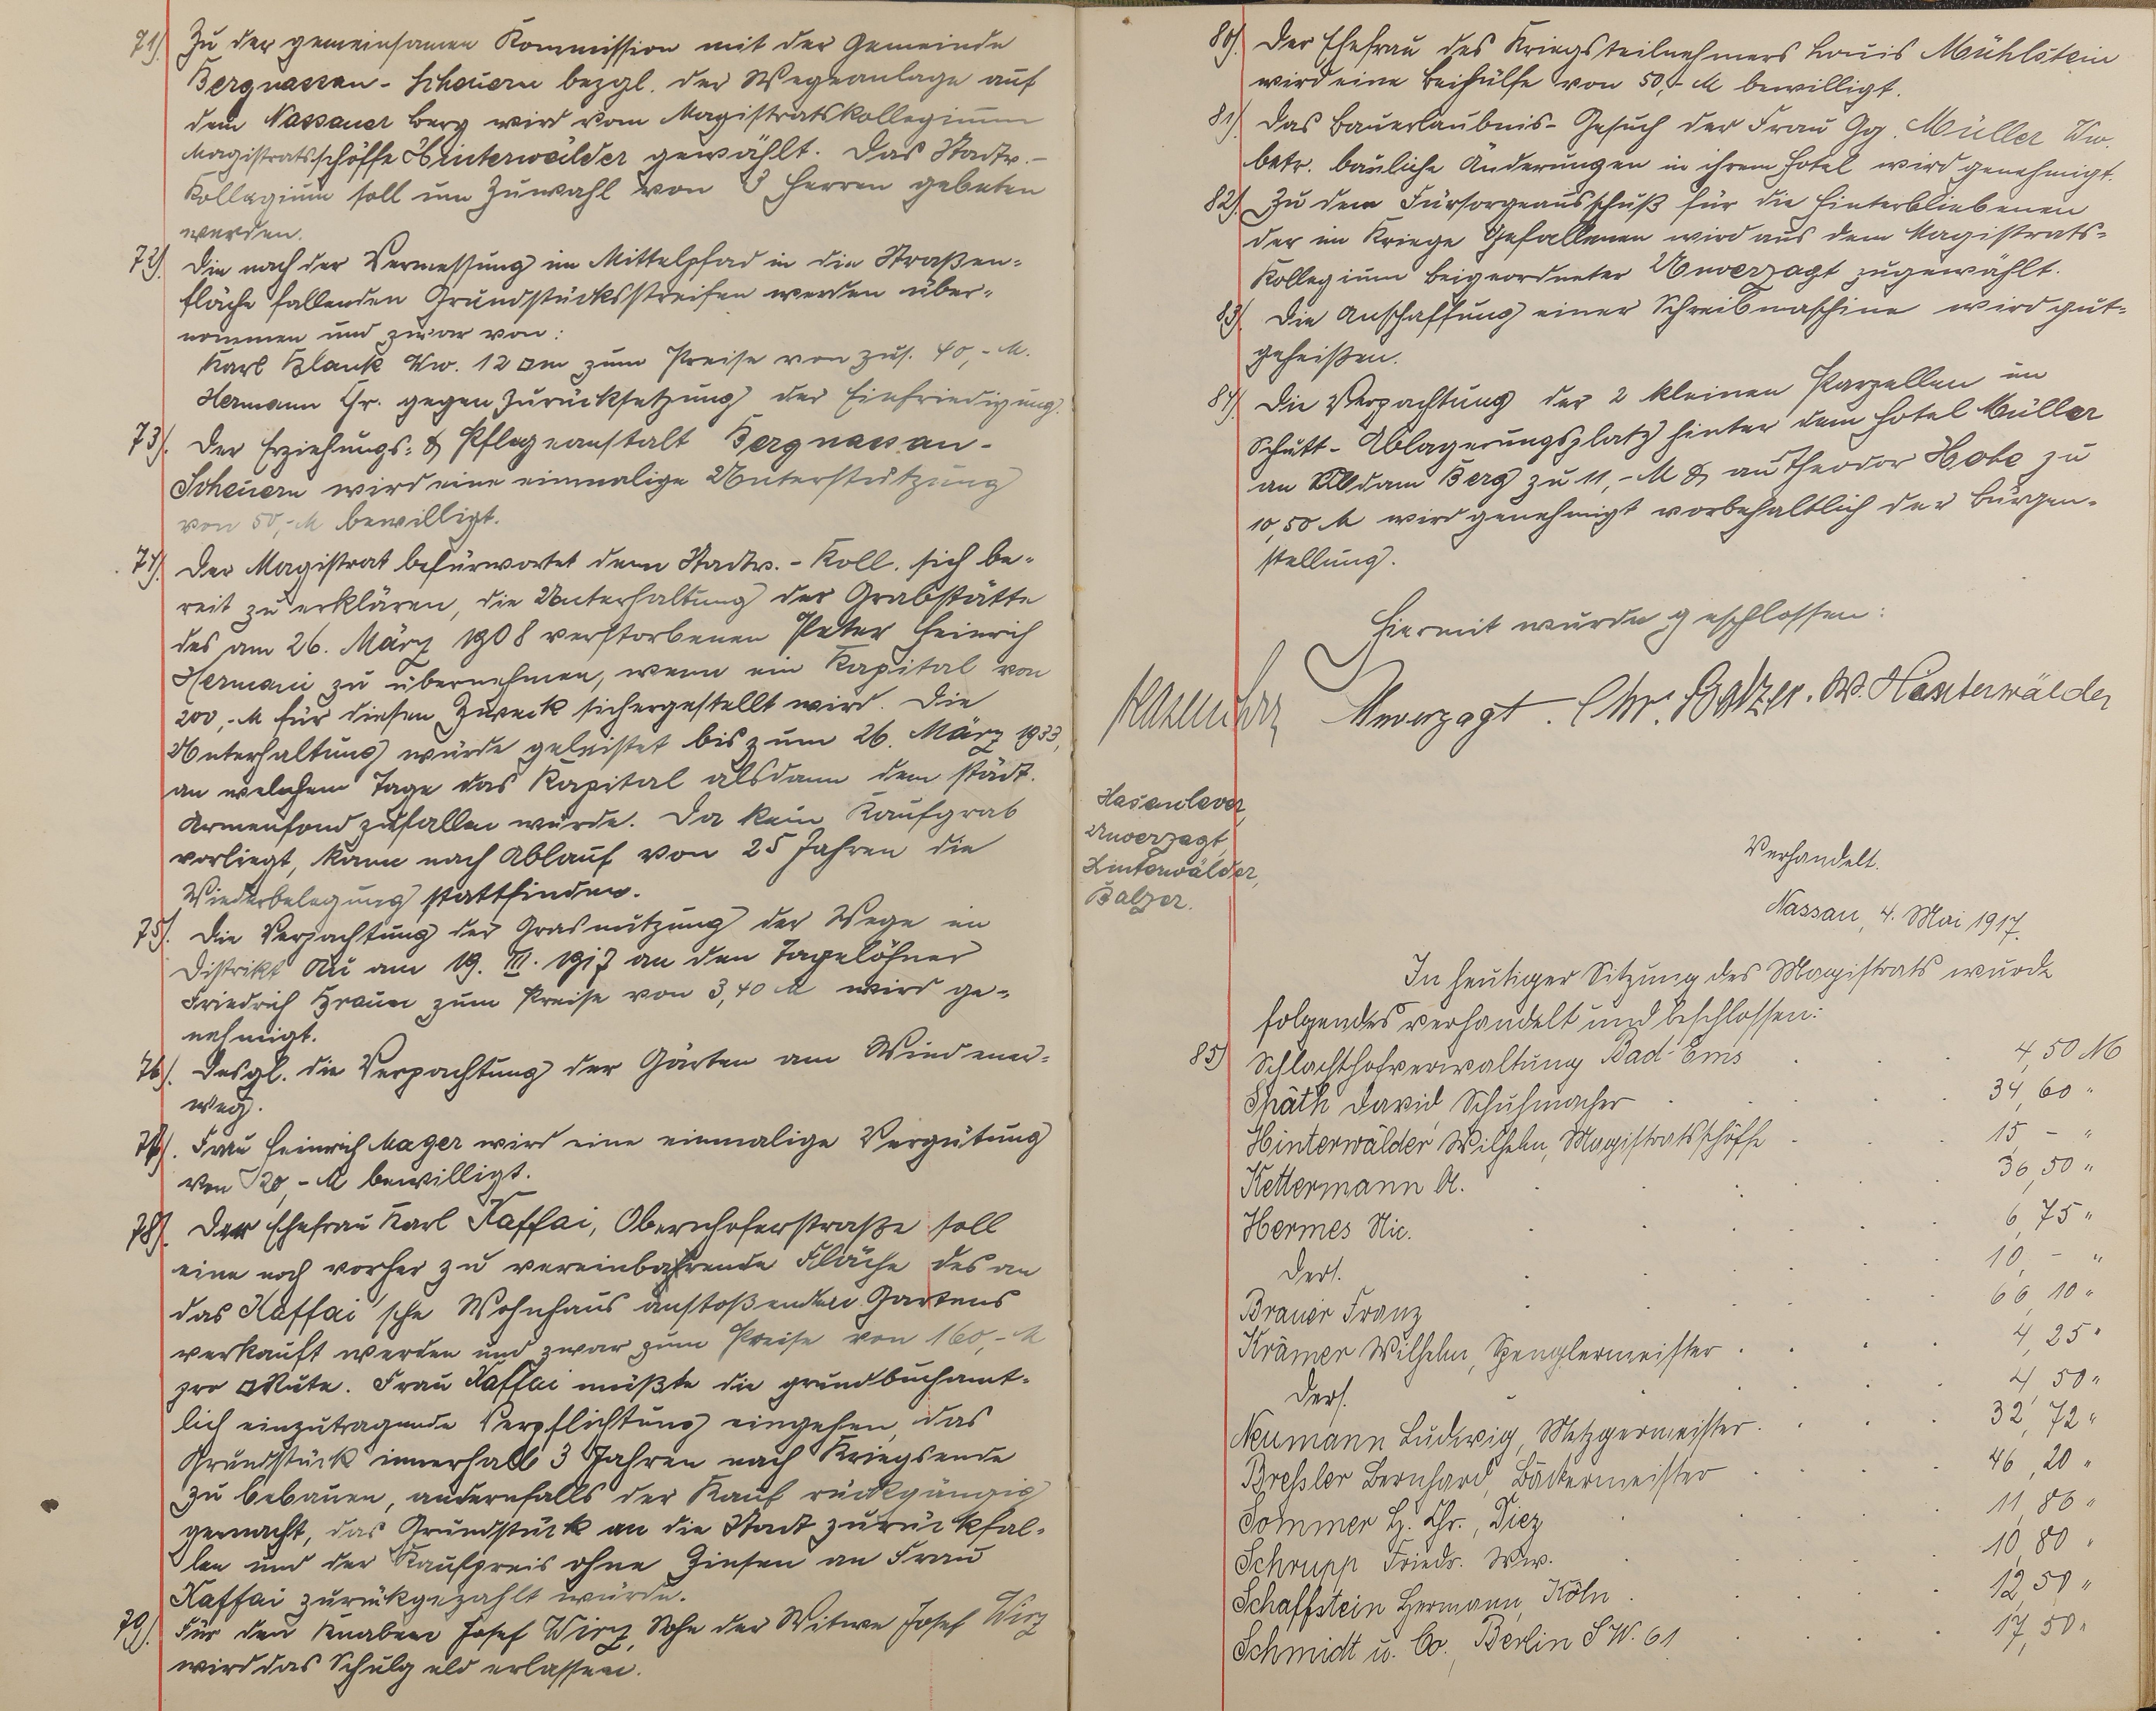 71). Zu der gemeinsamen Kommission mit der Gemeinde
Bergnassau-Scheuern bezgl. der Wegeanlage auf
dem Nassauer Berg wird vom Magistratskollegium
Magistratsschöffe Hinterwälder gewählt. Das Stadtv.-
Kollegium soll um Zuwahl von 3 Herren gebeten
werden.
72). Die nach der Vermessung im Mittelpfad in die Straßen-
fläche fallenden Grundstücksstreifen werden über-
nommen und zwar von:
Karl Blank Ww. 12 □m zum Preise von zus. 40,- M.
Hermann Chr. gegen Zurücksetzung der Einfriedigung.
73). Der Erziehungs- & Pflegeanstalt Bergnassau-
Scheuern wird eine einmalige Unterstützung
von 50,- M bewilligt.
74). Der Magistrat befürwortet dem Stadtv.-Koll. sich be-
reit zu erklären, die Unterhaltung der Grabstätte
des am 26. März 1908 verstorbenen Peter Heinrich
Hermani zu übernehmen, wenn ein Kapital von
200,- M für diesen Zweck sichergestellt wird. Die
Unterhaltung würde geleistet bis zum 26. März 1933,
an welchem Tage das Kapital alsdann dem städt.
Armenfond zufallen würde. Da kein Kaufgrab
vorliegt, kann nach Ablauf von 25 Jahren die
Wiederbelegung stattfinden.
75). Die Verpachtung der Grasnutzung der Wege im
Distrikt Au am 19. III. 1917 an den Tagelöhner
Friedrich Braun zum Preise von 3,40 M wird ge-
nehmigt.
76). Desgl. die Verpachtung der Gärten am Windener-
weg.
77). Frau Heinrich Mager wird eine einmalige Vergütung
von 20,- M bewilligt.
78). Der Ehefrau Karl Kaffai, Obernhoferstraße soll
eine noch vorher zu vereinbahrende Fläche des an
das Kaffai'sche Wohnhaus anstoßenden Gartens
verkauft werden und zwar zum Preise von 160,- M
pro □Rute. Frau Kaffai müßte die grundbuchamt-
lich einzutragende Verpflichtung eingehen, das
Grundstück innerhalb 3 Jahren nach Kriegsende
zu bebauen, andernfalls der Kauf rückgängig
gemacht, das Grundstück an die Stadt zurückfal-
len und der Kaufpreis ohne Zinsen an Frau
Kaffai zurückgezahlt würde.
79). Für den Knaben Josef Wirz, Sohn der Witwe Josef Wirz
wird das Schulgeld erlassen.
80). Der Ehefrau des Kriegsteilnehmers Louis Mühlstein
wird eine Beihülfe von 50,- M bewilligt.
81). Das Bauerlaubnis-Gesuch der Frau Gg. Müller Ww.
betr. bauliche Änderungen in ihrem Hotel wird genehmigt.
82). Zu dem Fürsorgeausschuß für die Hinterbliebenen
der im Kriege Gefallenen wird aus dem Magistrats-
Kollegium Beigeordneter Unverzagt zugewählt.
83). Die Anschaffung einer Schreibmaschine wird gut-
geheißen.
84). Die Verpachtung der 2 kleinen Parzellen im
Schutt-Ablagerungsplatz hinter dem Hotel Müller
an Adam Berg zu 11,- M & an Theodor Hobe zu
10,50 M wird genehmigt vorbehaltlich der Bürgen-
stellung.
Hiermit wurde geschlossen:
Hasenclever Unverzagt. Chr. Balzer. W. Hinterwälder
Hasenclever,
Unverzagt,
Hinterwälder,
Balzer.
Verhandelt.
Nassau, 4. Mai 1917.
In heutiger Sitzung des Magistrats wurde
folgendes verhandelt und beschlossen:
85) Schlachthofverwaltung Bad-Ems 4,50 M
Späth David, Schuhmacher 34,60 "
Hinterwälder Wilhelm, Magistratsschöffe 15,- "
Kettermann A. 36,50 "
Hermes Nic. 6,75 "
Ders. 10,- "
Brauer Franz 66,10 "
Krämer Wilhelm, Spenglermeister 4,25 "
Ders. 4,50 "
Neumann Ludwig, Metzgermeister 32,72 "
Breßler Bernhard, Bäckermeister 46,20 "
Sommer H. Chr., Diez 11,86 "
Schrupp Friedr. Ww. 10,80 "
Schaffstein Hermann, Köln 12,50 "
Schmidt u. Co., Berlin S.W. 61 17,50 "